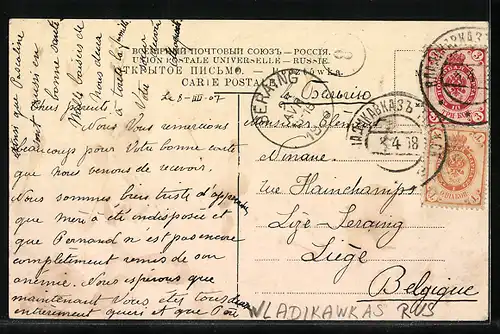 ВСЕМІРНЫЙ ПОЧТОВЫЙ СОЮЗЪ.—РОССІЯ.
UNION POSTALE UNIVERSELLE.—RUSSIE.
ОТКРЫТОЕ ПИСЬМО.
CARTE POSTALE
le 8-III-07
Chers parents
Nous Vous remercions
beaucoup pour Votre bonne carte
que nous venons de recevoir.
Nous sommes bien triste d'apprendre
que mère a été indisposée et
que Fernand n'est pas encore
complètement remis de son
anémie. Nous espérons que
maintenant Vous êtes tous deux
entièrement guéri et que
ainsi que Pascaline
sont aussi en
bonne santé
Mille baisers de
Nous deux
à toute la famille
Votre
8
SERAING
Бельгію
Monsieur
Ninane
rue Hainchamps
Lize-Seraing
Liège
Belgique
ВЛАДИКАВКАЗЪ
3
WLADIKAWKAS RUS